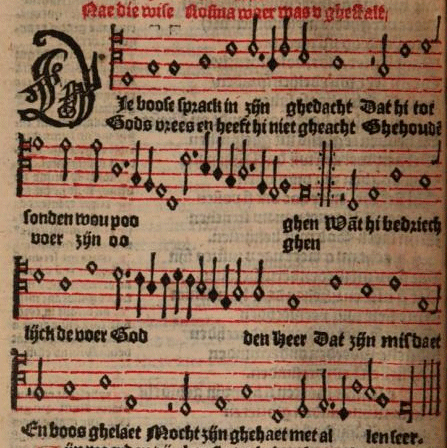 Nae die wise Rosina waer was v ghestalt,
DJe boose sprack in zijn ghedacht Dat hi tot
Gods vrees en heeft hi niet gheacht Ghehoudē
sonden wou poo ghen Wāt hi bedriech
voer zijn oo ghen
lijck de voer God den Heer Dat zijn misdaet
En boos ghelaet Mocht zijn ghehaet met al len seer.